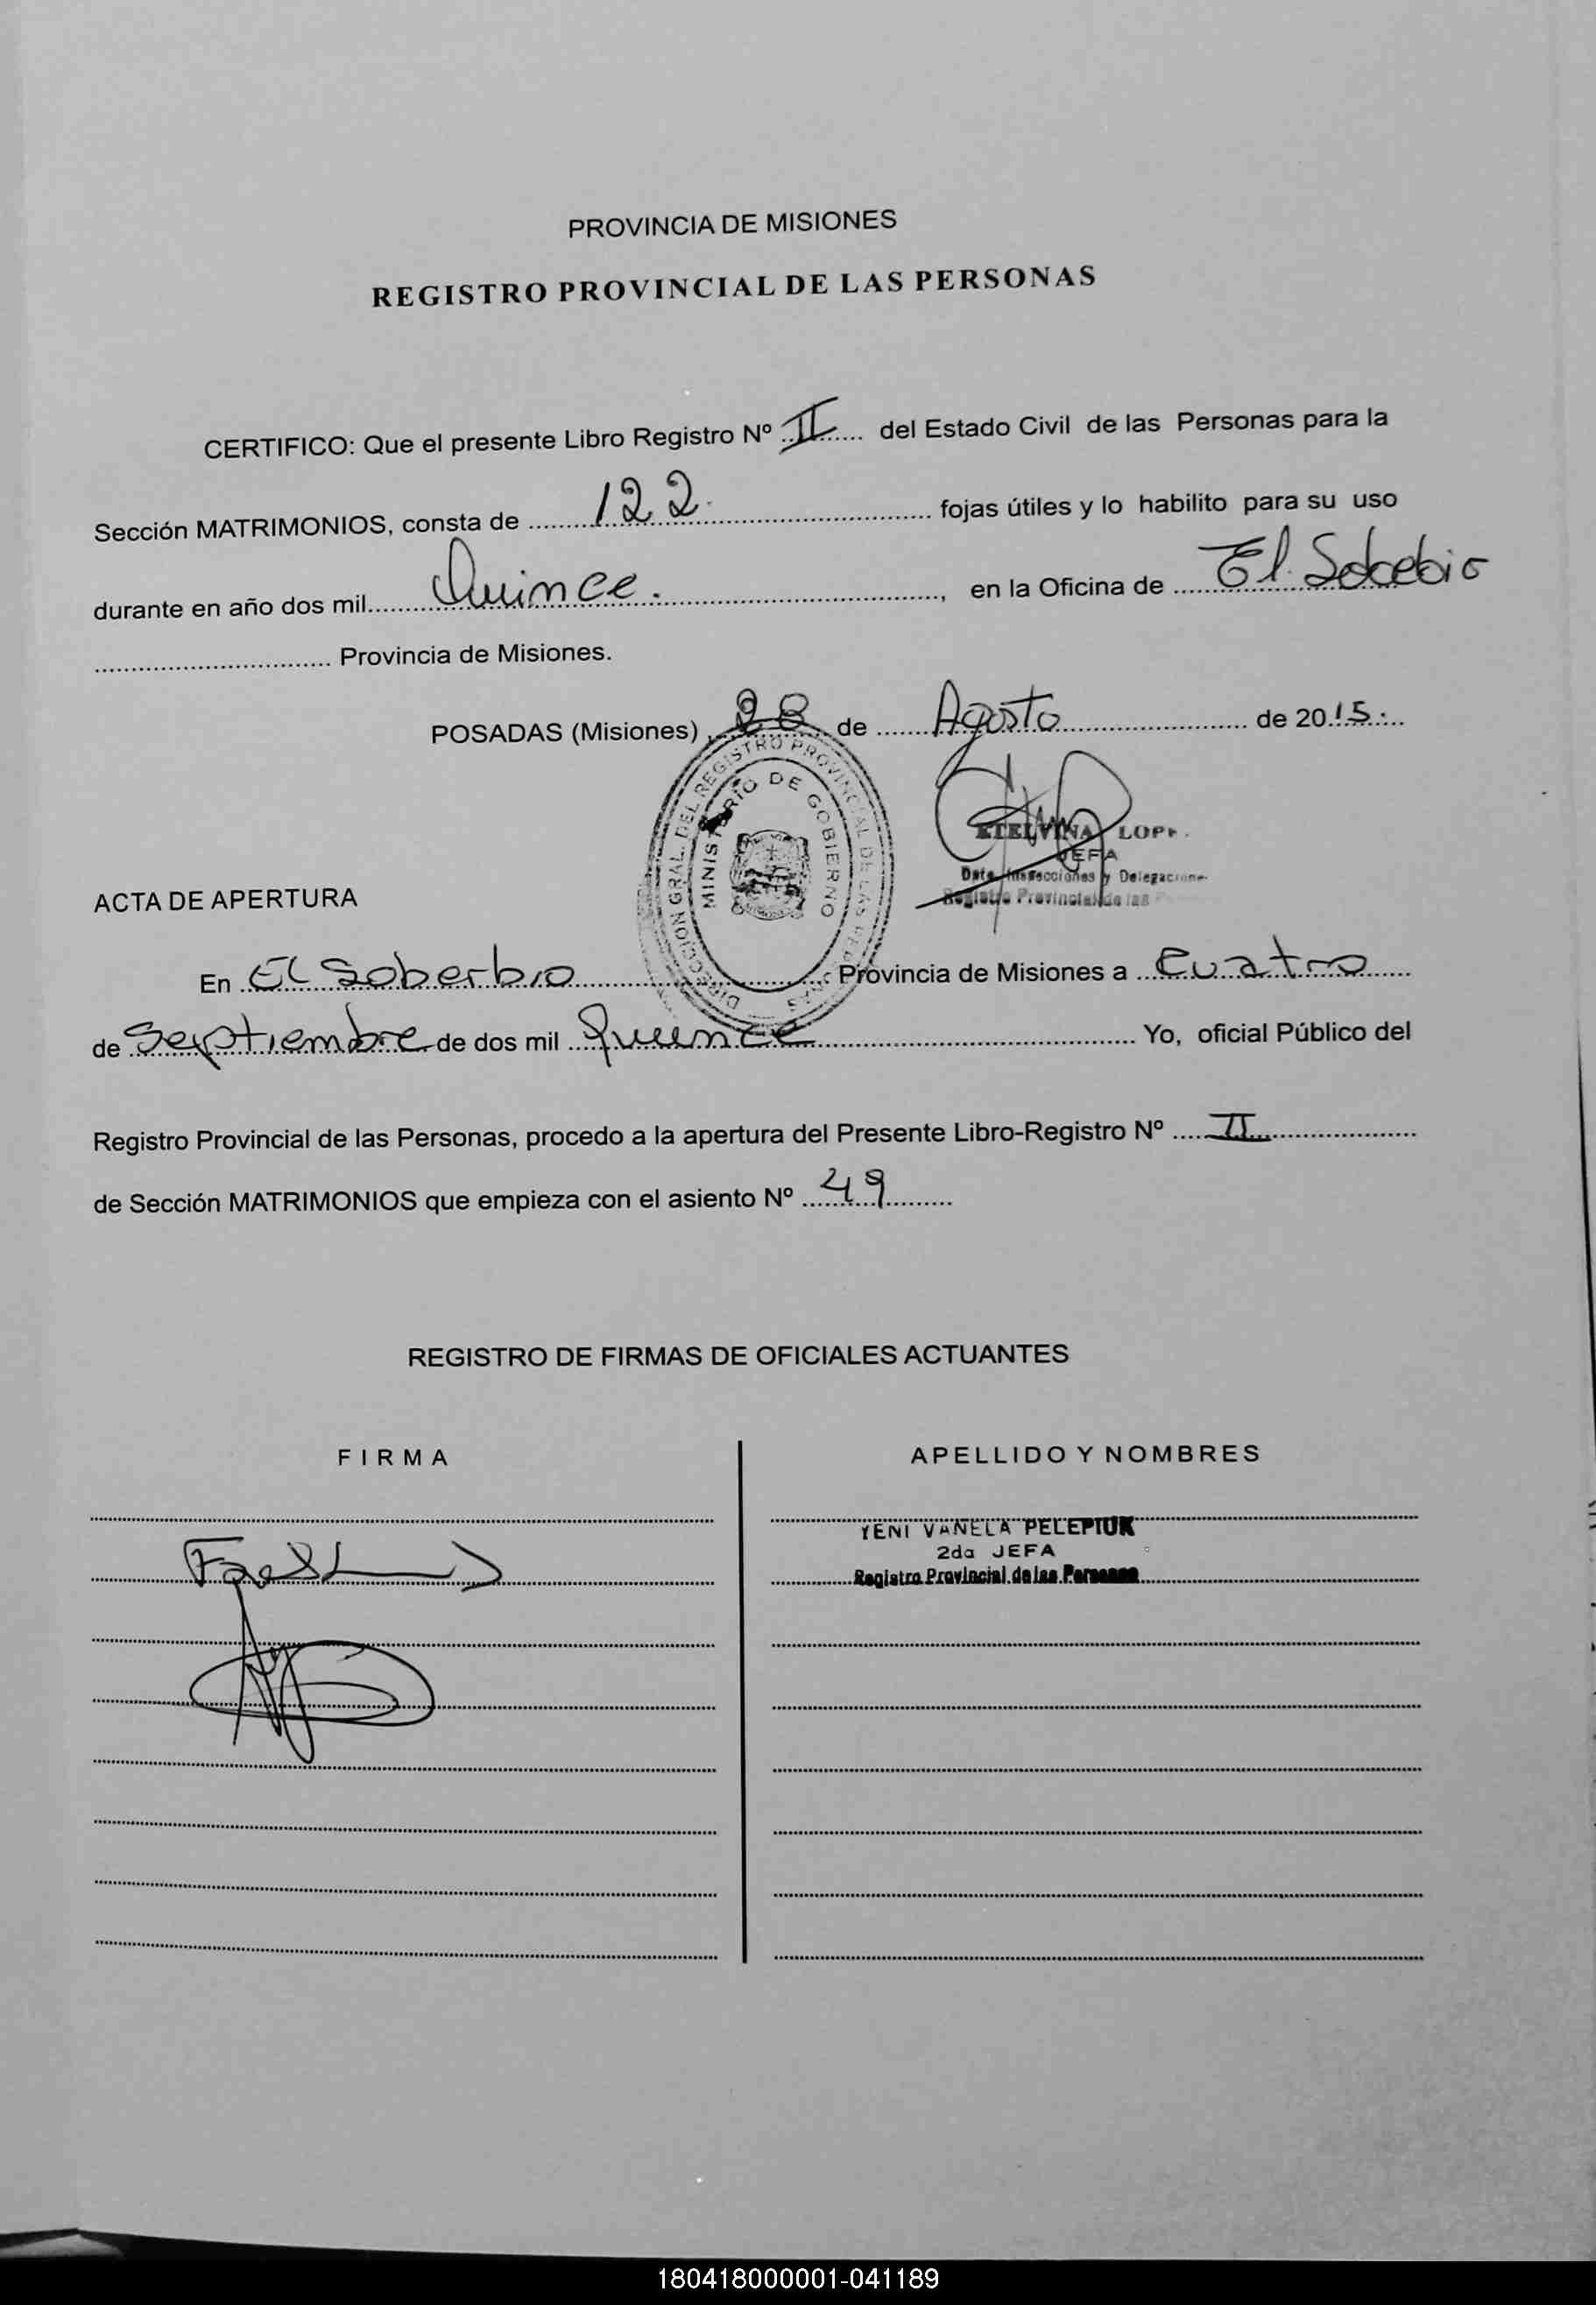 PROVINCIA DE MISIONES
REGISTRO PROVINCIAL DE LAS PERSONAS
CERTIFICO: Que el presente Libro Registro Nº II del Estado Civil de las Personas para la
Sección MATRIMONIOS, consta de 122. fojas útiles y lo habilito para su uso
durante en año dos mil Quince. , en la Oficina de El Soberbio
Provincia de Misiones.
POSADAS (Misiones), 28 de Agosto de 2015.
DIRECCION GRAL. DEL REGISTRO PROVINCIAL DE LAS PERSONAS
MINISTERIO DE GOBIERNO
ETELVINA LOPE
JEFA
Dpto. Inspecciones y Delegacione
Registro Provincial de las
ACTA DE APERTURA
En El Soberbio Provincia de Misiones a cuatro
de Septiembre de dos mil quince Yo, oficial Público del
Registro Provincial de las Personas, procedo a la apertura del Presente Libro-Registro Nº II
de Sección MATRIMONIOS que empieza con el asiento Nº 49
REGISTRO DE FIRMAS DE OFICIALES ACTUANTES
FIRMA
APELLIDO Y NOMBRES
YENI VANELA PELEPIUK
2da JEFA
Registro Provincial de las Personas
180418000001-041189